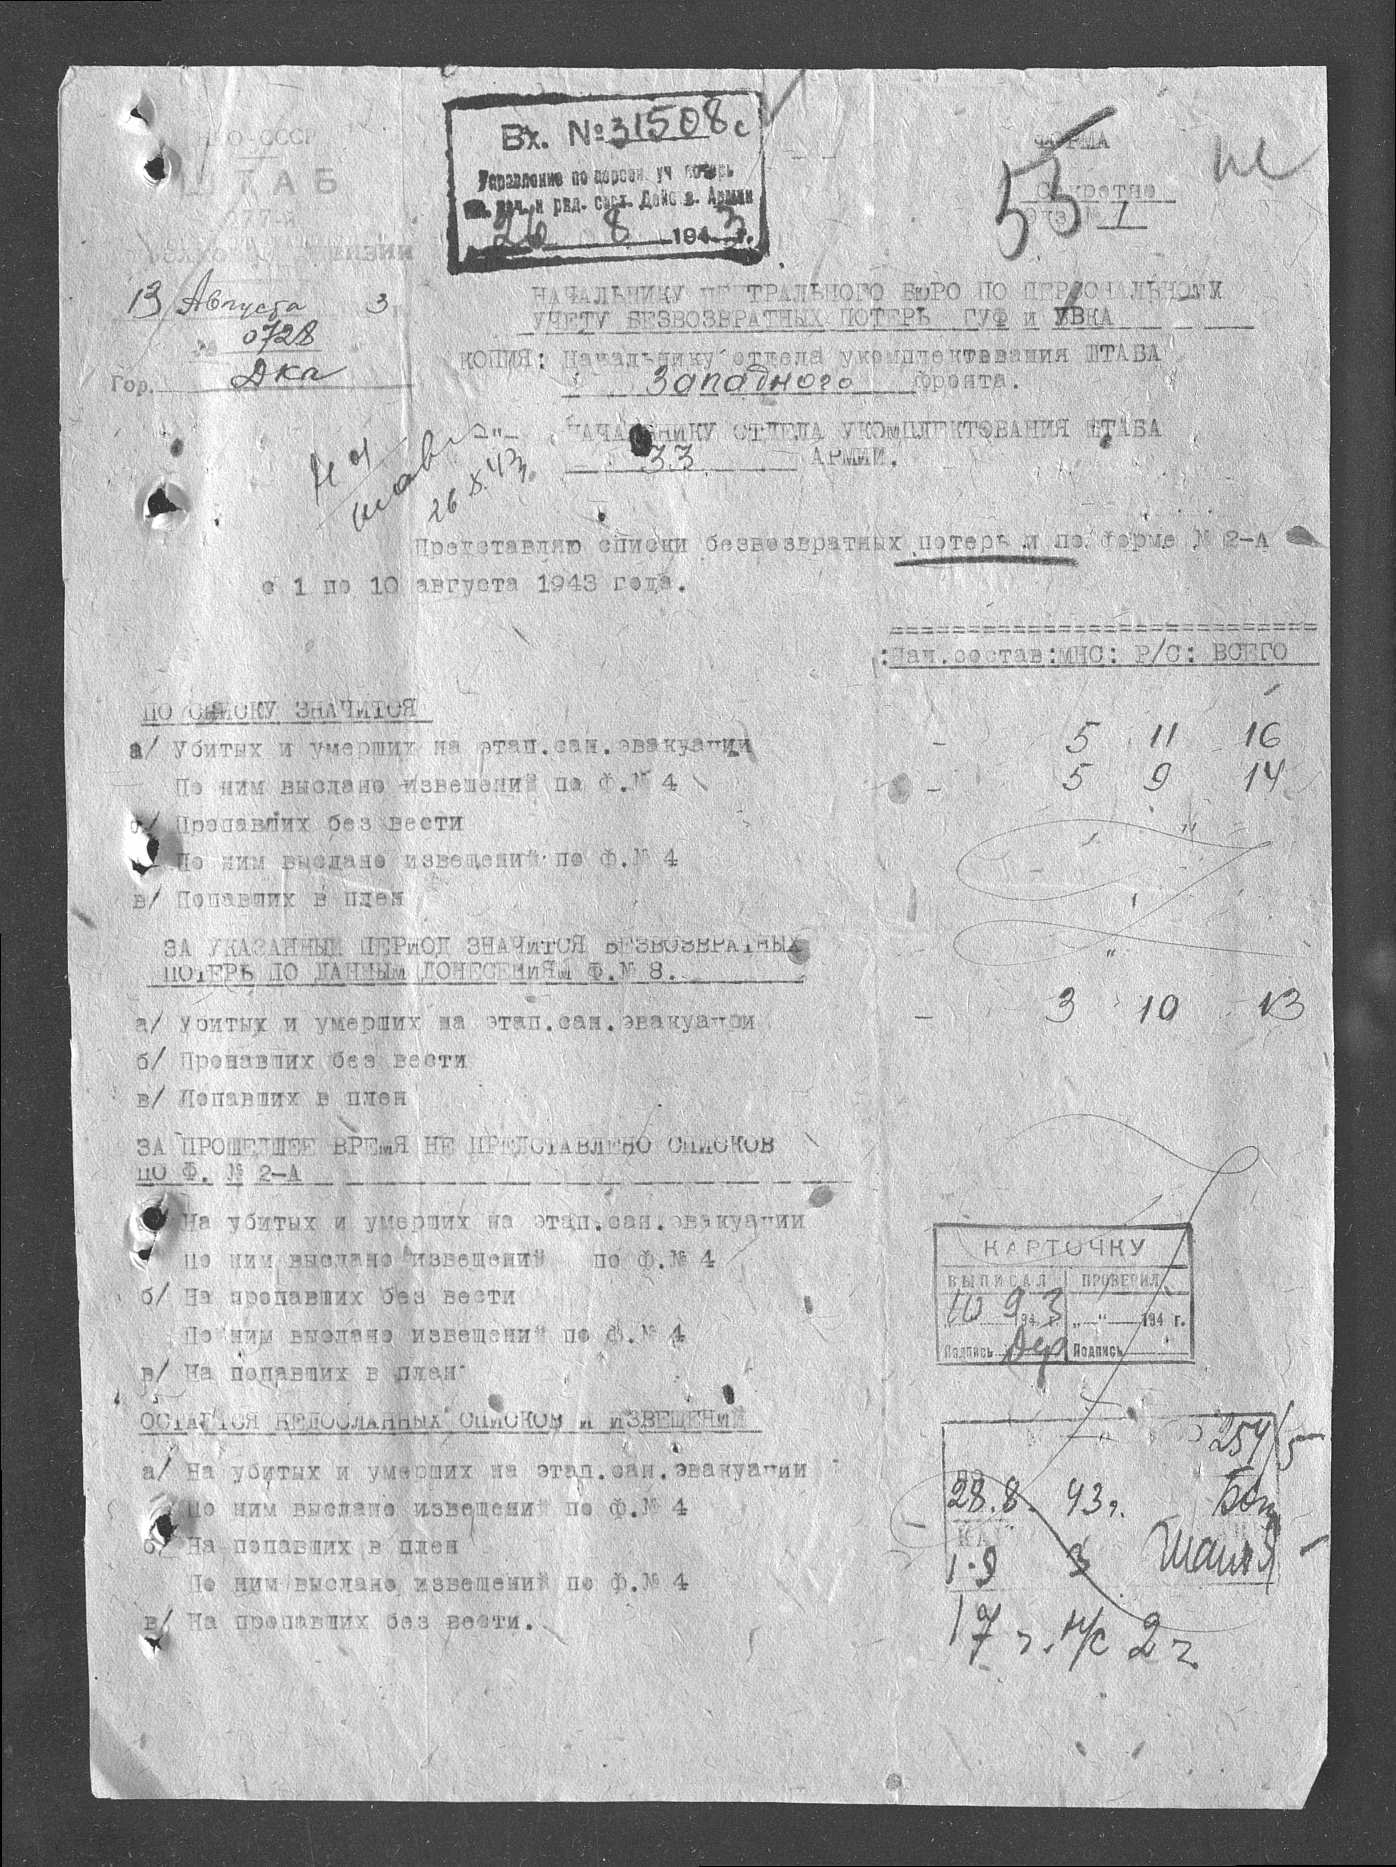 Вх. № 31508с
Управление по персон. уч. потерь
и ряд. сост. Действ. Армии
26 8 1943 г.
НКО-СССР
ШТАБ
277-й
ДИВИЗИИ
13 Августа 3 г.
0728
Гор. Дка
ФОРМА
Секретно
Экз № 1
55
НАЧАЛЬНИКУ ЦЕНТРАЛЬНОГО БЮРО ПО ПЕРСОНАЛЬНОМУ
УЧЕТУ БЕЗВОЗВРАТНЫХ ПОТЕРЬ ГУФ и УВКА
КОПИЯ: Начальнику отдела укомплектования ШТАБА
Западного фронта.
-"-
НАЧАЛЬНИКУ ОТДЕЛА УКОМПЛЕКТОВАНИЯ ШТАБА
33 АРМИИ.
Представляю списки безвозвратных потерь и по форме № 2-А
с 1 по 10 августа 1943 года.
:Нач.состав:МНС: Р/С: ВСЕГО
ПО СПИСКУ ЗНАЧИТСЯ
а/ Убитых и умерших на этап.сан.эвакуации - 5 11 16
По ним выслано извещений по ф.№ 4 - 5 9 14
б/ Пропавших без вести
По ним выслано извещений по ф.№ 4
в/ Попавших в плен
ЗА УКАЗАННЫЙ ПЕРИОД ЗНАЧИТСЯ БЕЗВОЗВРАТНЫХ
ПОТЕРЬ ПО ДАННЫМ ДОНЕСЕНИЯМ Ф.№ 8.
а/ Убитых и умерших на этап.сан.эвакуации - 3 10 13
б/ Пропавших без вести
в/ Попавших в плен
ЗА ПРОШЕДШЕЕ ВРЕМЯ НЕ ПРЕДСТАВЛЕНО СПИСКОВ
ПО Ф. № 2-А
На убитых и умерших на этап.сан.эвакуации
По ним выслано извещений по ф.№ 4
б/ На пропавших без вести
По ним выслано извещений по ф.№ 4
в/ На попавших в плен
ОСТАЕТСЯ НЕДОСЛАННЫХ СПИСКОВ И ИЗВЕЩЕНИЙ
а/ На убитых и умерших на этап.сан.эвакуации
По ним выслано извещений по ф.№ 4
б/ На попавших в плен
По ним выслано извещений по ф.№ 4
в/ На пропавших без вести.
КАРТОЧКУ
ВЫПИСАЛ ПРОВЕРИЛ
10 9 1943 „—“ 194 г.
Подпись Подпись
254/5
28.8. 43г.
1.9 3
17 ч. н/с 2 ч.